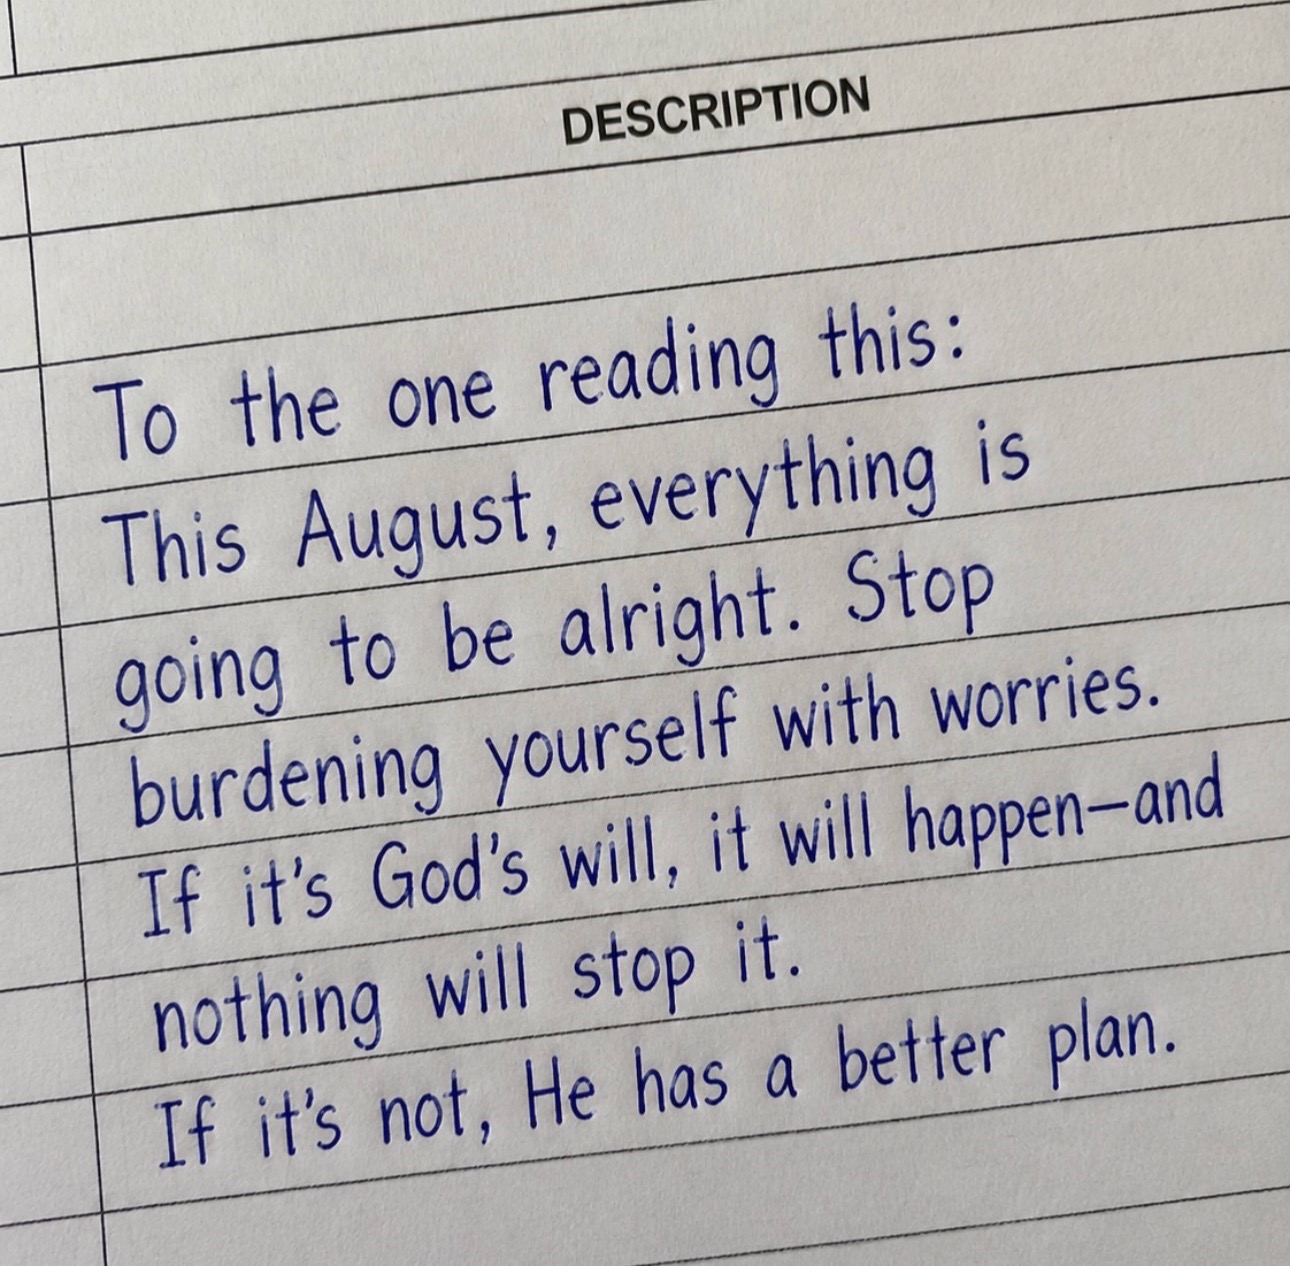 DESCRIPTION
To the one reading this:
This August, everything is
going to be alright. Stop
burdening yourself with worries.
If it's God's will, it will happen—and
nothing will stop it.
If it's not, He has a better plan.